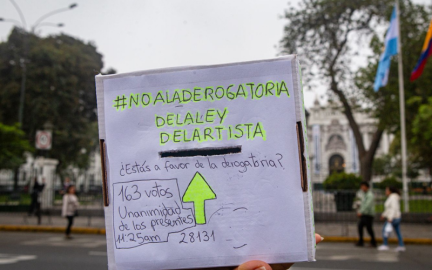 #NOALADEROGATORIA
DELALEY
DELARTISTA
¿Estás a favor de la derogatoria?
163 votos
Unanimidad
de los presentes
11:25am
28131